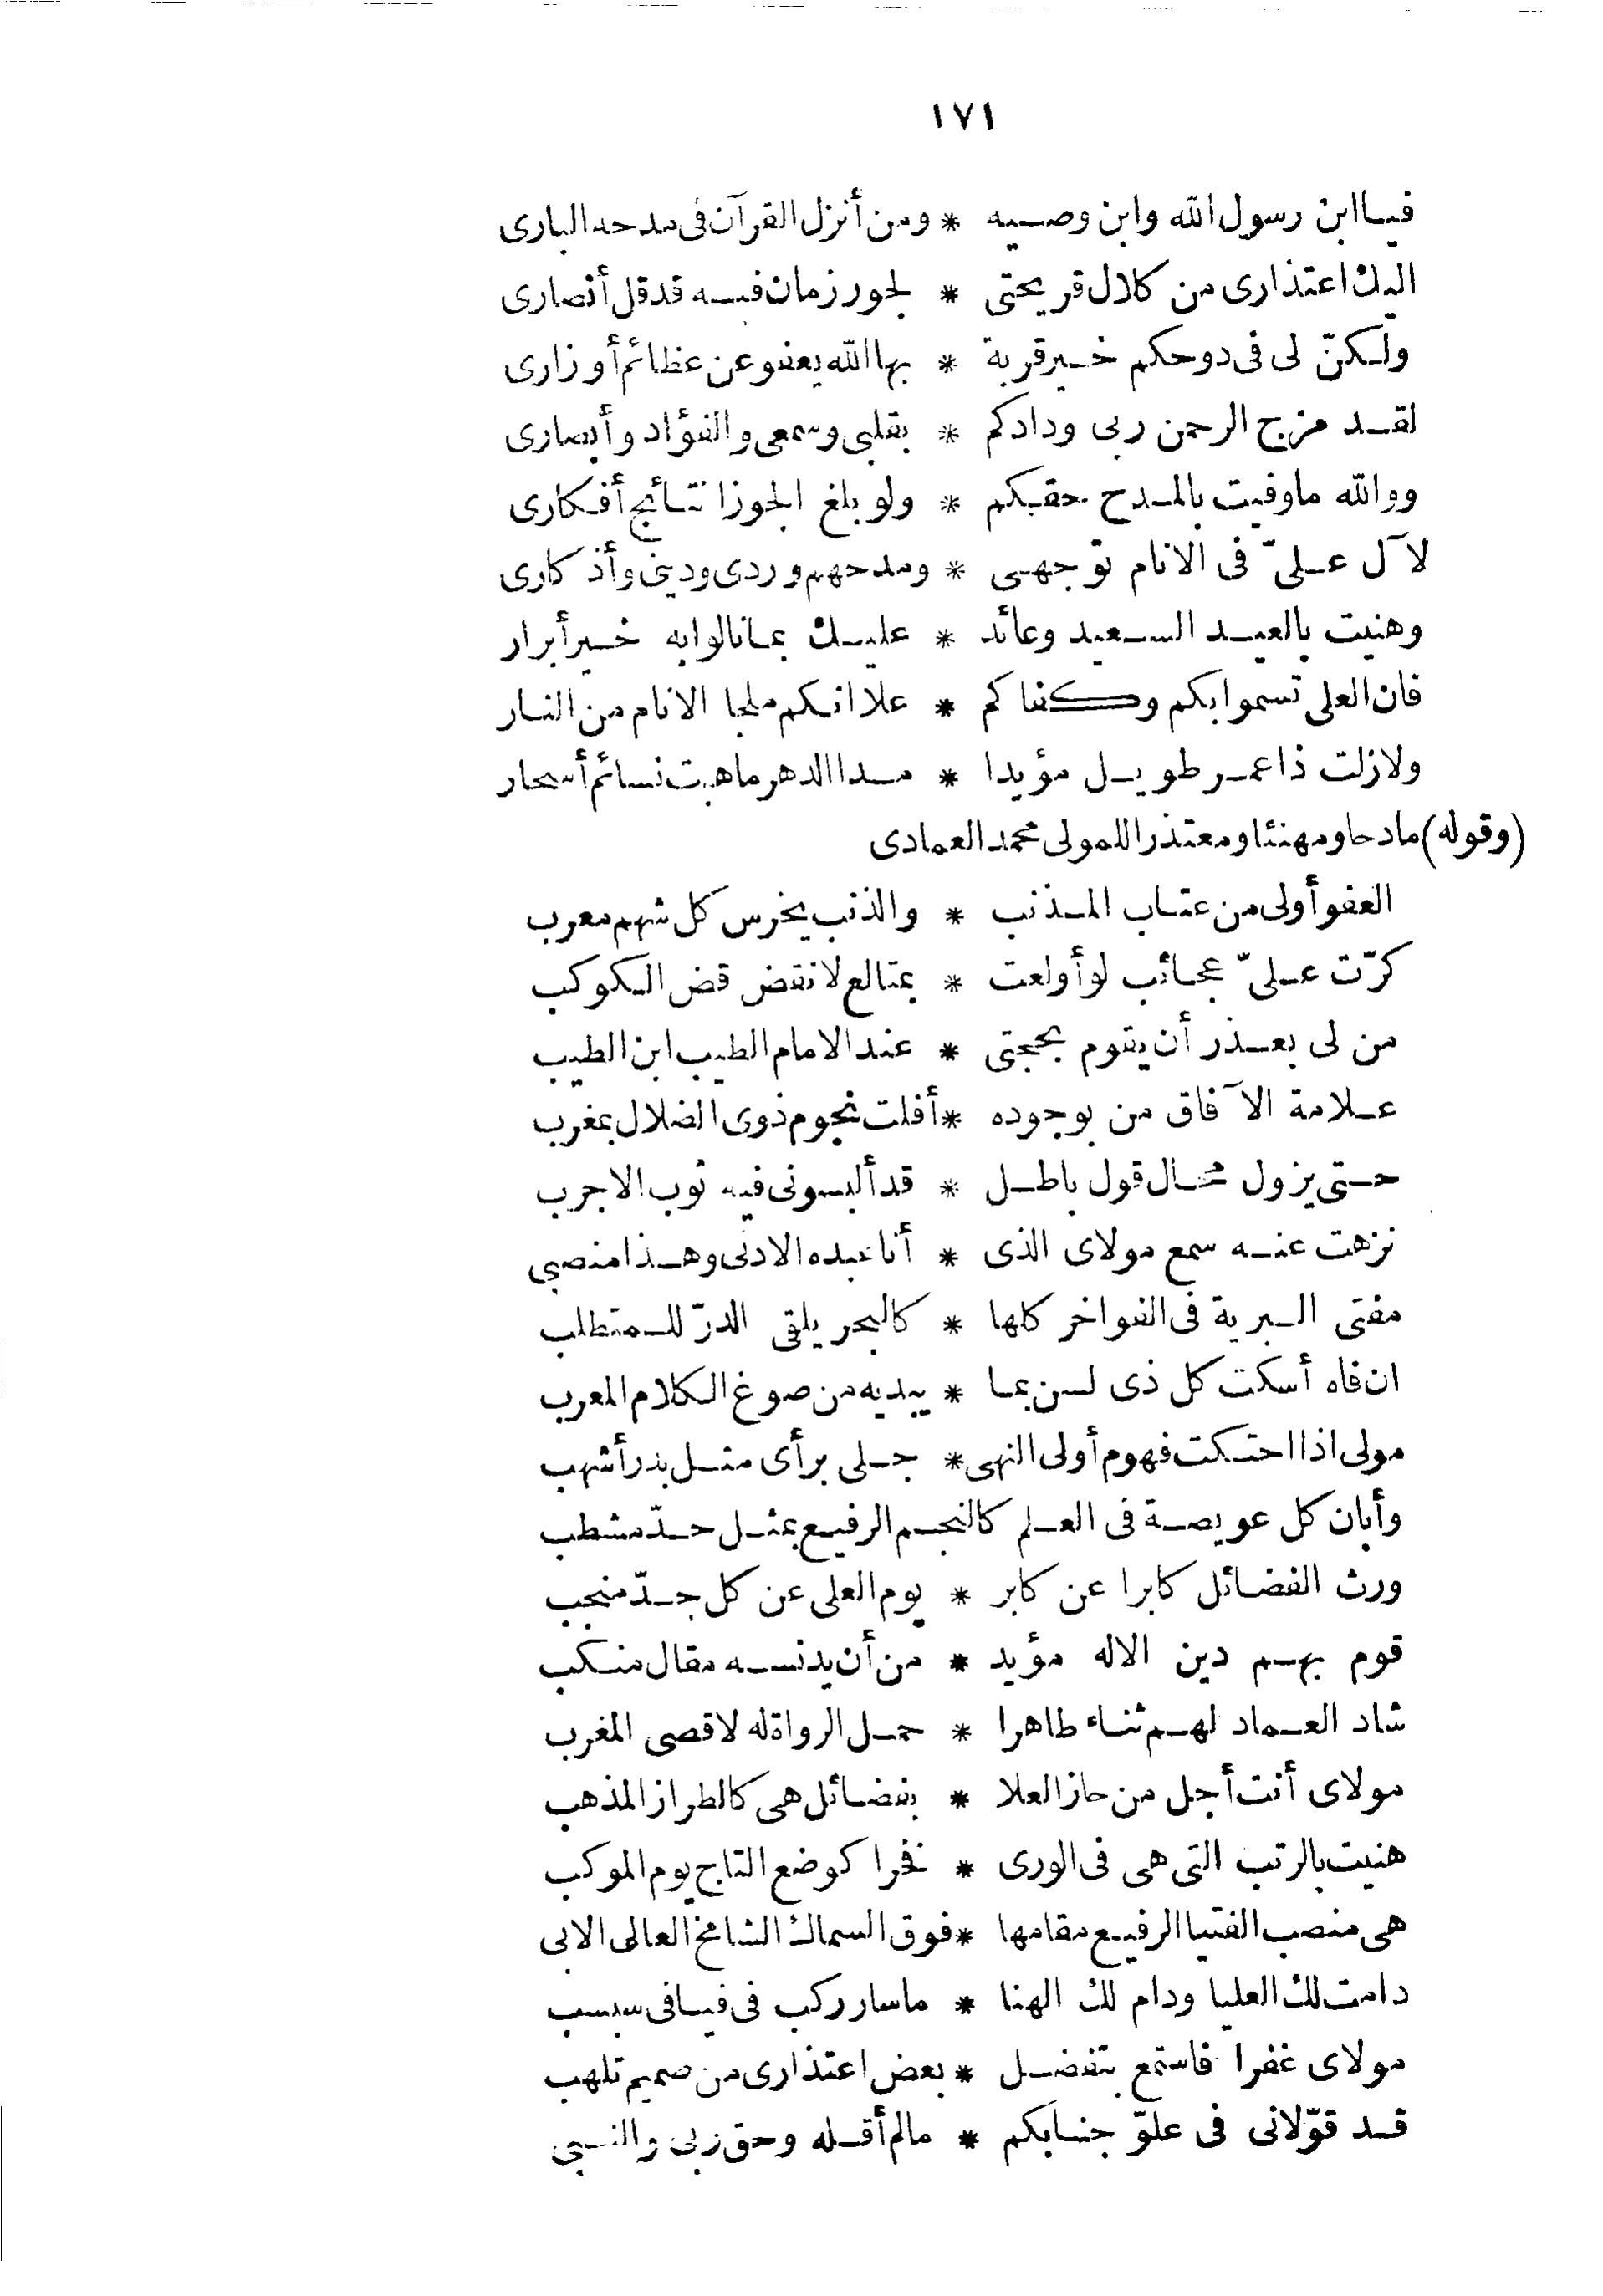 ١٧١
فيا ابن رسول الله وابن وصيه * ومن أنزل القرآن في مدحه الباري
اليك اعتذاري من كلال قريحتي * لجور زمان فيه قد قل أنصاري
ولكنّ لي في دوحكم خير قربة * بها الله يعفو عن عظائم أوزاري
لقد مزج الرحمن ربي ودادكم * بقلبي وسمعي والفؤاد وأبصاري
ووالله ما وفيت بالمدح حقكم * ولو بلغ الجوزا نتائج أفكاري
لآل عليّ في الانام توجهي * ومدحهم وردي وديني وأذكاري
وهنيت بالعيد السعيد وعائد * عليك بما نالوا به خير أبرار
فان العلى تسموا بكم وكفاكم * علا انكم ملجا الانام من النار
ولا زلت ذا عمر طويل مؤيدا * مدا الدهر ما هبت نسائم أسحار
(وقوله) مادحا ومهنئا ومعتذرا للمولى محمد العمادي
العفو أولى من عتاب المذنب * والذنب يخرس كل شهم معرب
كرّت عليّ عجائب لو أولعت * بمتالع لانقض قض الكوكب
من لي بعذر أن يقوم بحجتي * عند الامام الطيب ابن الطيب
علامة الآفاق من بوجوده * أفلت نجوم ذوي الضلال بمغرب
حتى يزول محال قول باطل * قد ألبسوني فيه ثوب الاجرب
نزهت عنه سمع مولاي الذي * أنا عبده الادنى وهذا منصبي
مفتي البرية في الفواخر كلها * كالبحر يلقي الدرّ للمتطلب
ان فاه أسكت كل ذي لسن بما * يبديه من صوغ الكلام المعرب
مولى اذا احتكت فهوم أولى النهى * جلى برأى مثل بدر أشهب
وأبان كل عويصة في العلم كالنجم الرفيع بمثل حدّ مشطب
ورث الفضائل كابرا عن كابر * يوم العلى عن كل جدّ منجب
قوم بهم دين الاله مؤيد * من أن يدنسه مقال منكب
شاد العماد لهم ثناء طاهرا * حمل الرواة له لاقصى المغرب
مولاي أنت أجل من حاز العلا * بفضائل هي كالطراز المذهب
هنيت بالرتب التي هي في الورى * فخرا كوضع التاج يوم الموكب
هي منصب الفتيا الرفيع مقامها * فوق السماك الشامخ العالي الابي
دامت لك العليا ودام لك الهنا * ما سار ركب في فيافي سبسب
مولاي غفرا فاستمع بتفضل * بعض اعتذاري من صميم تلهب
قد قوّلاني في علوّ جنابكم * ما لم أقله وحق ربي والنبي